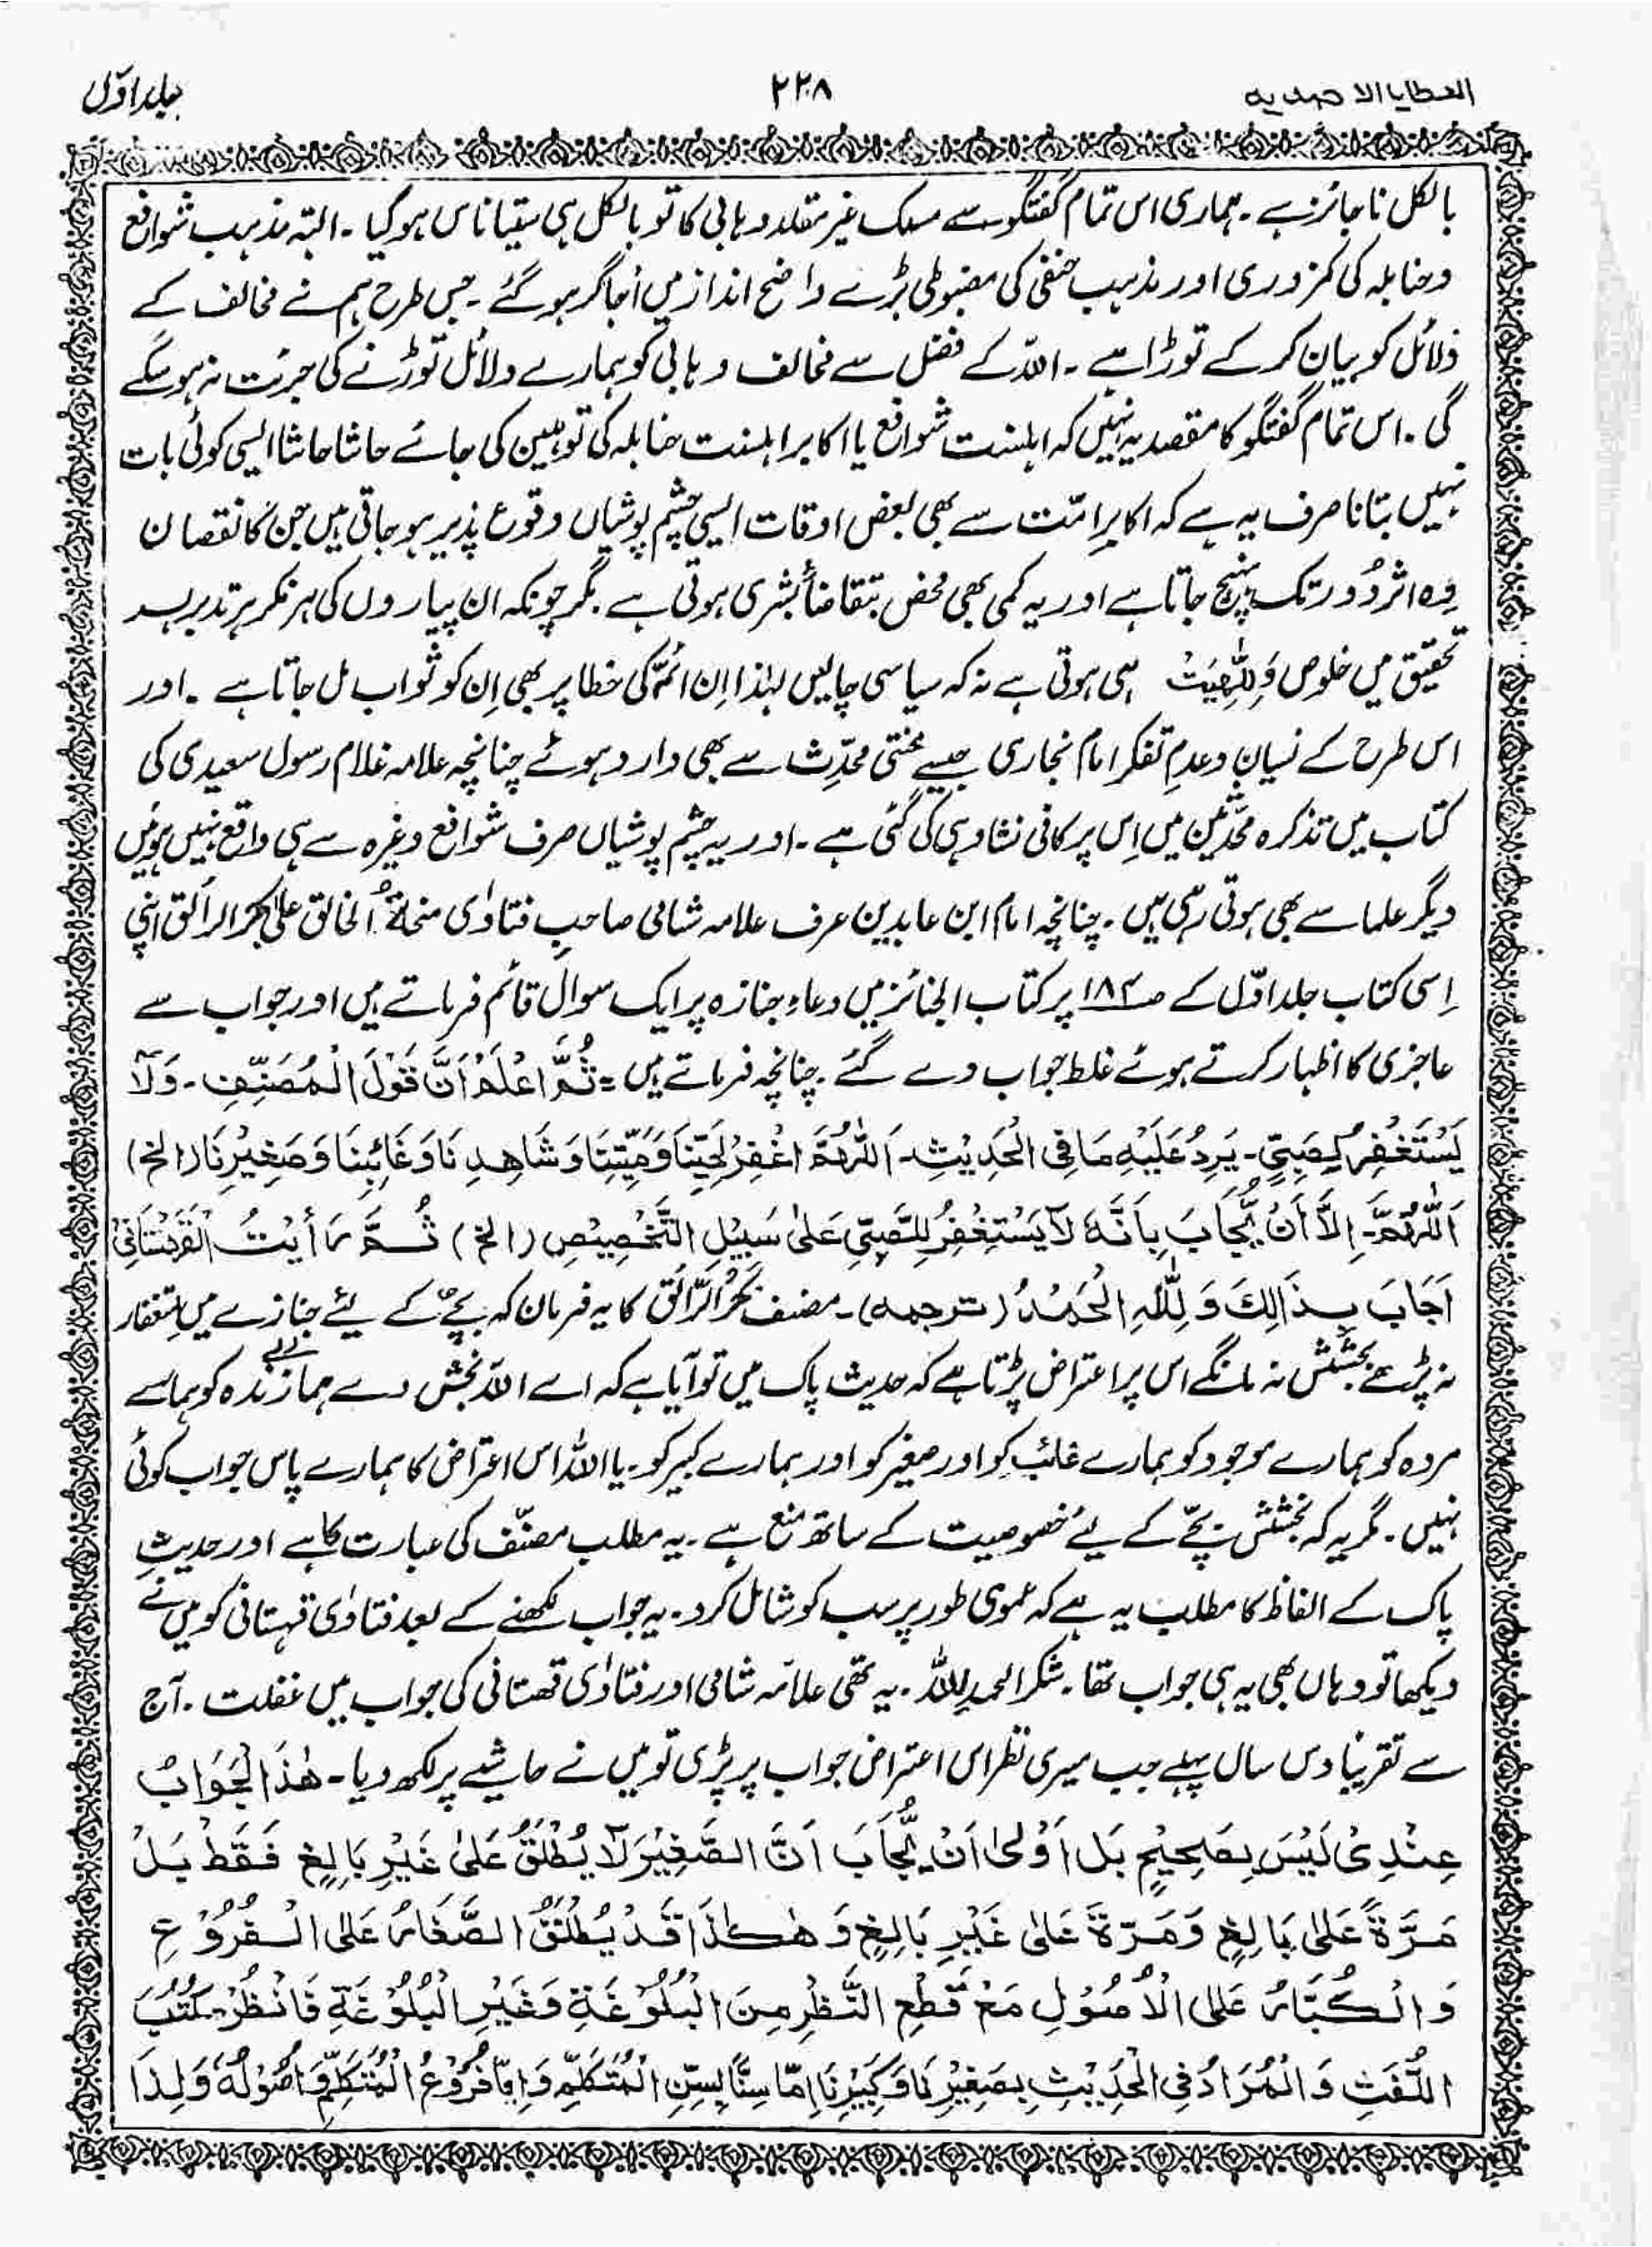 العطایا الاحمدیه
۲۲۸
جلد اوّل
بالکل ناجائز ہے ۔ ہماری اس تمام گفتگو سے مسلک غیر مقلد وہابی کا تو بالکل ہی ستیاناس ہو گیا ۔ البتہ مذہب شوافع
وحنابلہ کی کمزوری اور مذہب حنفی کی مضبوطی بڑے واضح انداز میں اُجاگر ہو گئے ۔ جس طرح ہم نے مخالف کے
دلائل کو بیان کر کے توڑا ہے ۔ اللہ کے فضل سے مخالف وہابی کو ہمارے دلائل توڑنے کی جرئت نہ ہو سکے
گی ۔ اس تمام گفتگو کا مقصد یہ نہیں کہ اہلسنت شوافع یا اکابر اہلسنت حنابلہ کی توہین کی جائے حاشا حاشا ایسی کوئی بات
نہیں بتانا صرف یہ ہے کہ اکابرِ امّت سے بھی بعض اوقات ایسی چشم پوشیاں وقوع پذیر ہو جاتی ہیں جن کا نقصان
وہ اثر دُور تک پہنچ جاتا ہے اور یہ کمی بھی محض بتقاضأ بشری ہوتی ہے ۔ مگر چونکہ ان پیاروں کی ہر فکر ہر تدبر ہر
تحقیق میں خلوص وَلِلّٰہِیَتْ ہی ہوتی ہے نہ کہ سیاسی چالیں لہٰذا اِن ائمّہ کی خطا پر بھی اِن کو ثواب مل جاتا ہے ۔ اور
اس طرح کے نسیان وعدمِ تفکر امام بخاری جیسے محنتی محدّث سے بھی وارد ہوئے چنانچہ علامہ غلام رسول سعیدی کی
کتاب میں تذکرہ محدّثین میں اِس پر کافی نشادہی کی گئی ہے ۔ اور یہ چشم پوشیاں صرف شوافع وغیرہ سے ہی واقع نہیں ہوئیں
دیگر علما سے بھی ہوتی رہی ہیں ۔ چنانچہ امام ابن عابدین عرف علامہ شامی صاحبِ فتاوٰی منحۃُ الخالق علیٰ بحر الرائق اپنی
اِسی کتاب جلد اوّل کے صـ۱۸۴ پر کتاب الجنائز میں دعاءِ جنازہ پر ایک سوال قائم فرماتے ہیں اور جواب سے
عاجزی کا اظہار کرتے ہوئے غلط جواب دے گئے ۔ چنانچہ فرماتے ہیں = ثُمَّ اعْلَمْ اَنَّ قَوْلَ الْمُصَنِّفِ ۔ وَلَآ
یَسْتَغْفِرُ لِصَبِیٍّ ۔ یَرِدُ عَلَیْهِ مَا فِی الْحَدِیْثِ ۔ اَللّٰهُمَّ اغْفِرْ لِحَیِّنَا وَمَیِّتِنَا وَشَاهِدِنَا وَغَائِبِنَا وَصَغِیْرِنَا (الخ)
اَللّٰهُمَّ ۔ اِلَّا اَنْ یُّجَابَ بِاَنَّهٗ لَا یَسْتَغْفِرُ لِلصَّبِیِّ عَلٰی سَبِیْلِ التَّخْصِیْصِ (الخ) ثُمَّ رَأَیْتُ الْقَهِسْتَانِیْ
اَجَابَ بِذَالِكَ وَلِلّٰهِ الْحَمْدُ (ترجمه) ۔ مصنف بحرُ الرّائق کا یہ فرمان کہ بچے کے لئے جنازے میں استغفار
نہ پڑھے بخشش نہ مانگے اس پر اعتراض پڑتا ہے کہ حدیث پاک میں تو آیا ہے کہ اے اللہ بخش دے ہمارے زندہ کو ہمارے
مردہ کو ہمارے موجود کو ہمارے غائب کو اور صغیر کو اور ہمارے کبیر کو ۔ یا اللہ اس اعتراض کا ہمارے پاس جواب کوئی
نہیں ۔ مگر یہ کہ بخشش بچّے کے لیے خصوصیت کے ساتھ منع ہے ۔ یہ مطلب مصنّف کی عبارت کا ہے اور حدیثِ
پاک کے الفاظ کا مطلب یہ ہے کہ عمومی طور پر سب کو شامل کرد ۔ یہ جواب لکھنے کے بعد فتاوٰی قہستانی کو میں نے
دیکھا تو وہاں بھی یہ ہی جواب تھا ۔ شکر الحمد لِلہ ۔ یہ تھی علامّہ شامی اور فتاوٰی قهستانی کی جواب میں غفلت ۔ آج
سے تقریباً دس سال پہلے جب میری نظر اس اعتراض جواب پر پڑی تو میں نے حاشیے پر لکھ دیا ۔ هٰذَا الْجَوَابُ
عِنْدِیْ لَیْسَ بِصَحِیْحٍ بَلْ اَوْلٰی اَنْ یُّجَابَ اَنَّ الصَّغِیْرَ لَا یُطْلَقُ عَلٰی غَیْرِ بَالِغٍ فَقَطْ بَلْ
مَرَّةً عَلٰی بَالِغٍ وَمَرَّةً عَلٰی غَیْرِ بَالِغٍ وَهٰکَذَا قَدْ یُطْلَقُ الصَّغَارُ عَلَی الْفُرُوْعِ
وَالْکُبَّارُ عَلَی الْاُصُوْلِ مَعْ قَطْعِ النَّظْرِ مِنَ الْبُلُوْغَةِ وَغَیْرِ الْبُلُوْغَةِ فَانْظُرْ کُتُبَ
اللُّغَتِ وَالْمُرَادُ فِی الْحَدِیْثِ بِصَغِیْرِنَا وَکَبِیْرِنَا اِمَّا سِنًّا بِسِنِّ الْمُتَکَلِّمِ وَاِمَّا فُرُوْعُ الْمُتَکَلِّمِ وَاُصُوْلُهٗ وَلِذَا